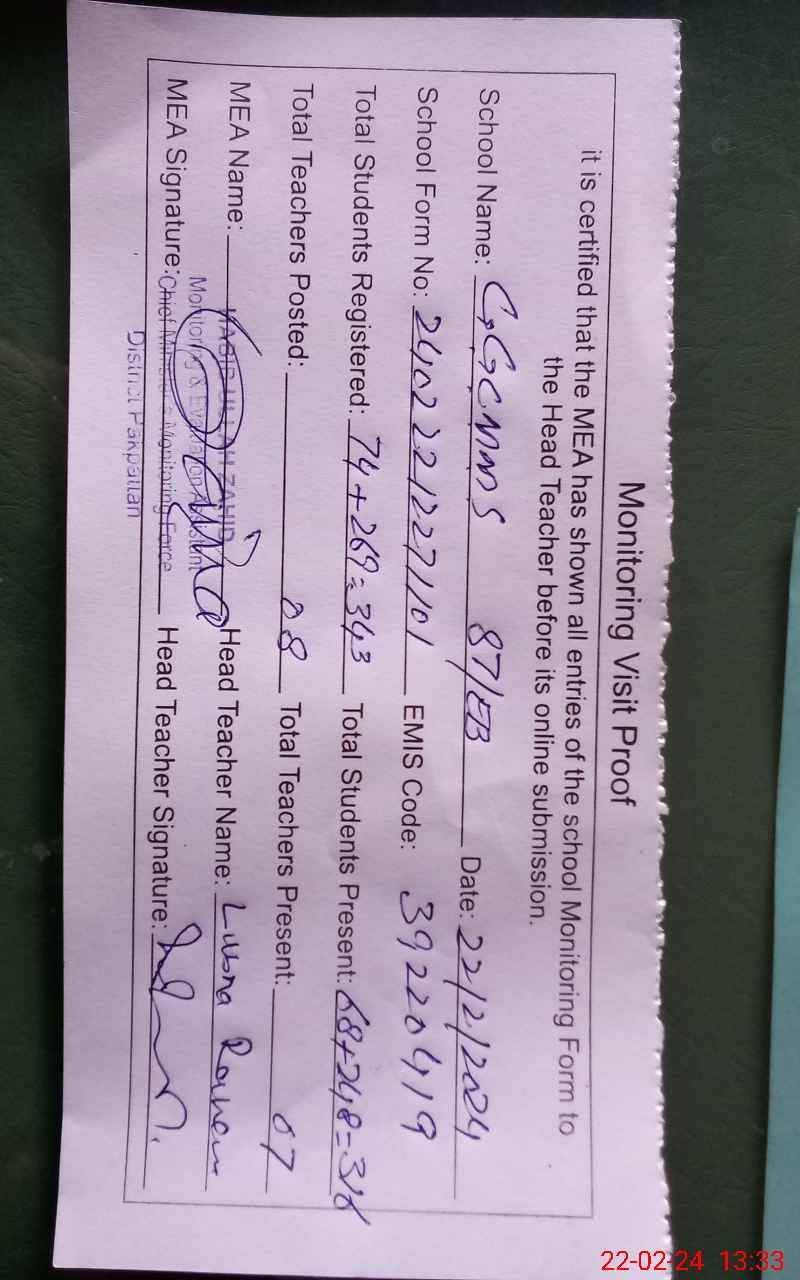 Monitoring Visit Proof
it is certified that the MEA has shown all entries of the school Monitoring Form to
the Head Teacher before its online submission.
School Name: GGCMMS 87/EB Date: 22/2/2024
School Form No: 24022212271101 EMIS Code: 39220419
Total Students Registered: 74+269=343 Total Students Present: 68+248=316
Total Teachers Posted: 08 Total Teachers Present: 07
MEA Name: ULLAH ZAHID Head Teacher Name: Lubna
Monitoring & Evaluation Assistant
MEA Signature: Chief Minister's Monitoring Force Head Teacher Signature:
District Pakpattan
22-02-24 13:33